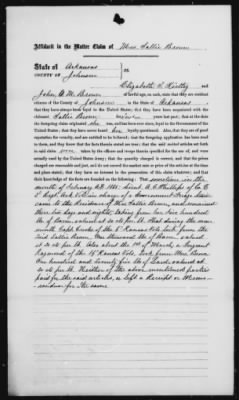 Affidavit in the Matter Claim of Mrs. Sallie Brown
State of Arkansas
COUNTY OF Johnson ss.
Elizabeth S. and
John A. M. Brown
of lawful age, on oath, state that they are resident
citizens of the County of Johnson in the State of Arkansas
that they have always been loyal to the United States; that they have been acquainted with the
claimant Sallie Brown for years; that at the date of
the foregoing claim originated she was, and has been ever since, loyal to the Government of the
United States; that they have never heard her loyalty questioned. Also, that they are of good
reputation for veracity, and are entitled to be believed; that the foregoing application has been read
to them, and they know that the facts therein stated are true; that the said stated articles set forth
in said claim were taken by the officers and troops therein specified for the use of, and were
actually used by the United States Army; that the quantity charged is correct, and that the prices
charged are reasonable and just, and do not exceed the market rate or price of the articles at the time
and place stated; that they have no interest in the prosecution of this claim whatever; and that
their knowledge of the facts are founded on the following:
month of February AD 1864. Lieut. A. C. Phillips of Co. E
2d Regt. Kan. Vols in charge of a Government Forage train
came to the Residence of Mrs Sallie Brown, and remained
there two days and nights, taking from her Five hundred
lbs of Bacon valued at 20 cts per lb. That during the same
month Capt. of the 6th Kansas Vols. took from the
said Sallie Brown, One thousand lbs of Bacon valued
at 20 cts per lb. Also about the 1st of March, a Sergeant
Raymond of the 15 Kansas Vols. took from Mrs. Brown
One hundred and twenty five lbs of Lard valued at
20 cts per lb. Neither of the above mentioned parties
paid for the said articles, or left a Receipt or Memo-
randum for the same